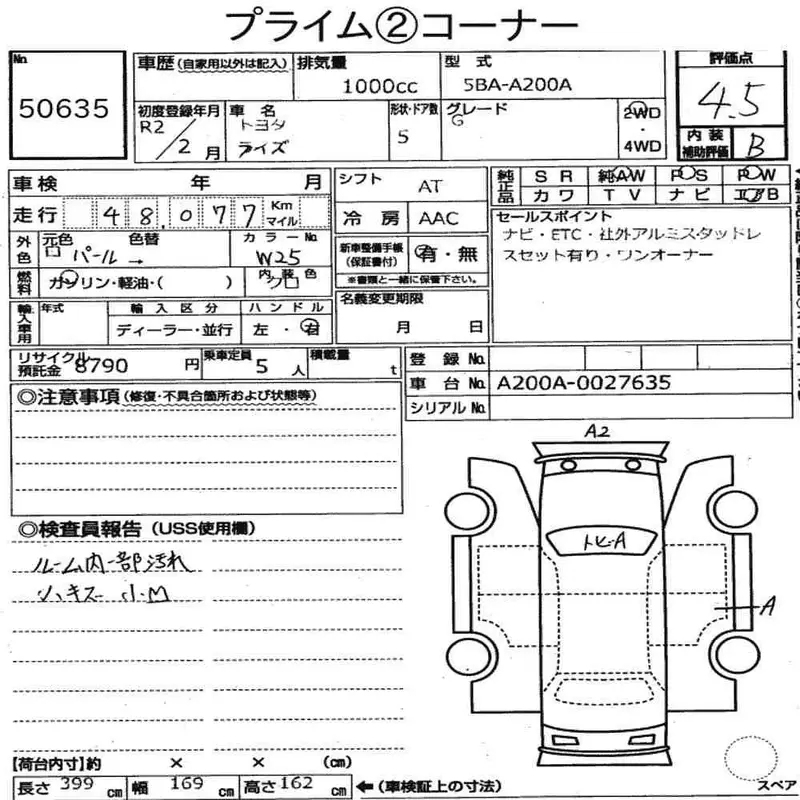 プライム②コーナー
No. 50635
車歴 (自家用以外は記入)
排気量 1000cc
型式 5BA-A200A
評価点 4.5
初度登録年月 R2/2月
車名 トヨタ ライズ
形状・ドア数 5
グレード G
2WD・4WD
内装補助評価 B
車検 年 月
シフト AT
純正品 SR 純AW PS PW
カワ TV ナビ エアB
走行 48,077 Km マイル
冷房 AAC
セールスポイント
ナビ・ETC・社外アルミスタッドレ
スセット有り・ワンオーナー
外色 元色 パール → 色替
カラーNo. W25
新車整備手帳(保証書付) 有・無
※書類と一緒に保管下さい。
燃料 ガソリン・軽油・( )
内装色 クロ
名義変更期限
月 日
輸入車用 年式
輸入区分 ディーラー・並行
ハンドル 左・右
リサイクル預託金 8790 円
乗車定員 5 人
積載量 t
登録No.
車台No. A200A-0027635
シリアルNo.
◎注意事項 (修復・不具合箇所および状態等)
◎検査員報告 (USS使用欄)
ルーム内一部汚れ
ハキズ 小M
A2
トビ-A
A
スペア
【荷台内寸】約 × × (cm)
長さ 399 cm 幅 169 cm 高さ 162 cm ←(車検証上の寸法)